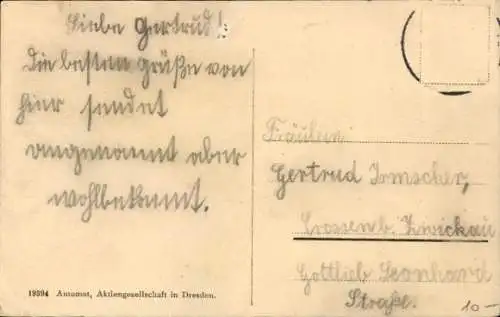 Liebe Gertrud!
Die besten grüße von
hier sendet
ungenannt aber
wohlbekannt.
Fräulein
Gertrud Irmscher,
Crossen b. Zwickau
Gottlieb Leonhard
Straße.
19394 Automat, Aktiengesellschaft in Dresden.
10-